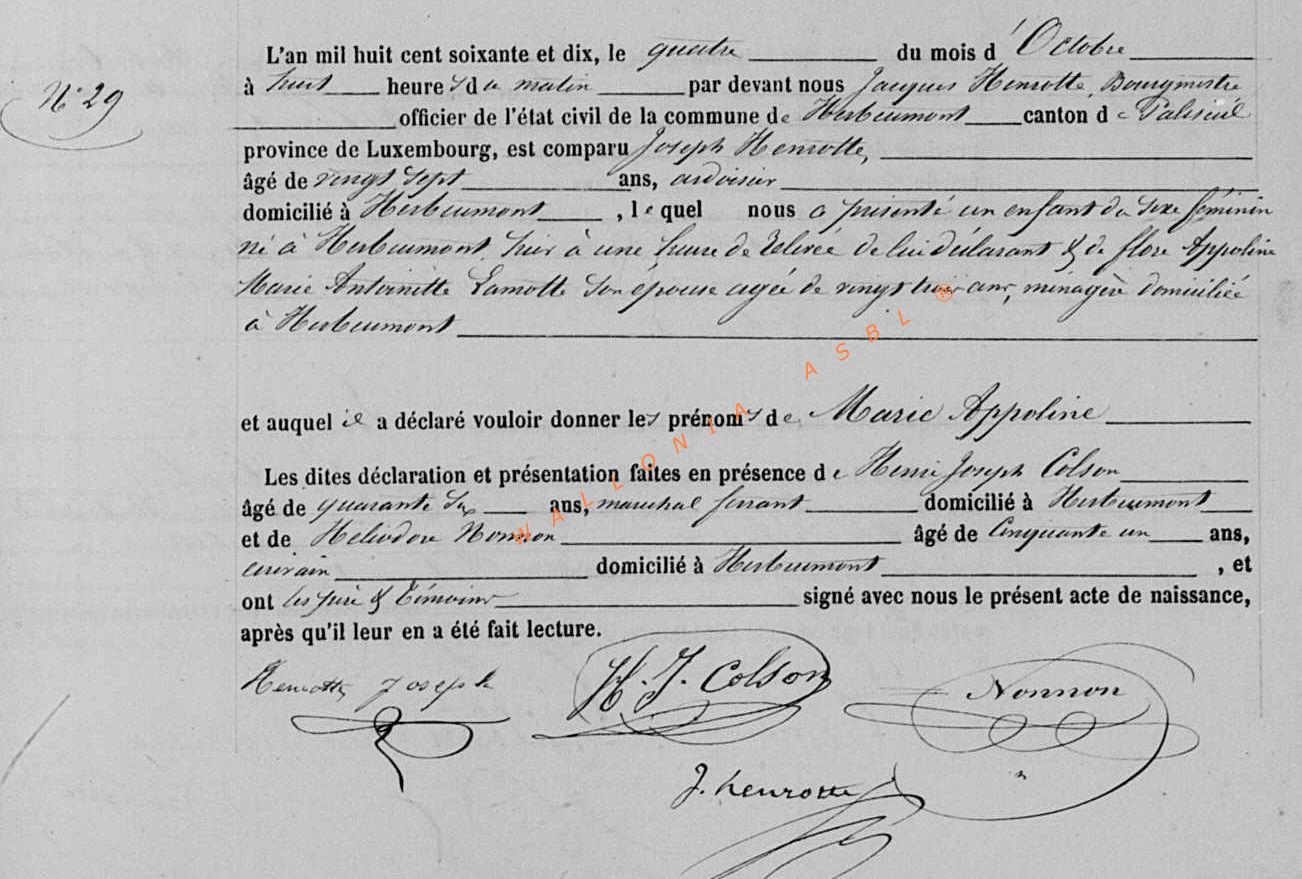 L'an mil huit cent soixante et dix, le quatre du mois d'Octobre
N° 29
à huit heures du matin par devant nous Jacques Henrotte, Bourgmestre
officier de l'état civil de la commune de Herbeumont canton de Paliseul
province de Luxembourg, est comparu Joseph Henrotte,
âgé de vingt sept ans, ardoisier
domicilié à Herbeumont, lequel nous a présenté un enfant du sexe féminin
né à Herbeumont, hier à une heure de relevée de lui déclarant & de flore Appoline
Marie Antoinette Lamotte son épouse agée de vingt trois ans, ménagère domiciliée
à Herbeumont
et auquel il a déclaré vouloir donner les prénoms de Marie Appoline
Les dites déclaration et présentation faites en présence de Henri Joseph Colson
âgé de quarante ans, marechal ferrant domicilié à Herbeumont
et de Héliodore Nonnon âgé de Cinquante un ans,
domicilié à Herbeumont, et
ont les père & témoins signé avec nous le présent acte de naissance,
après qu'il leur en a été fait lecture.
Henrotte Joseph H. J. Colson Nonnon
J. henrotte
WALLONIA ASBL ®